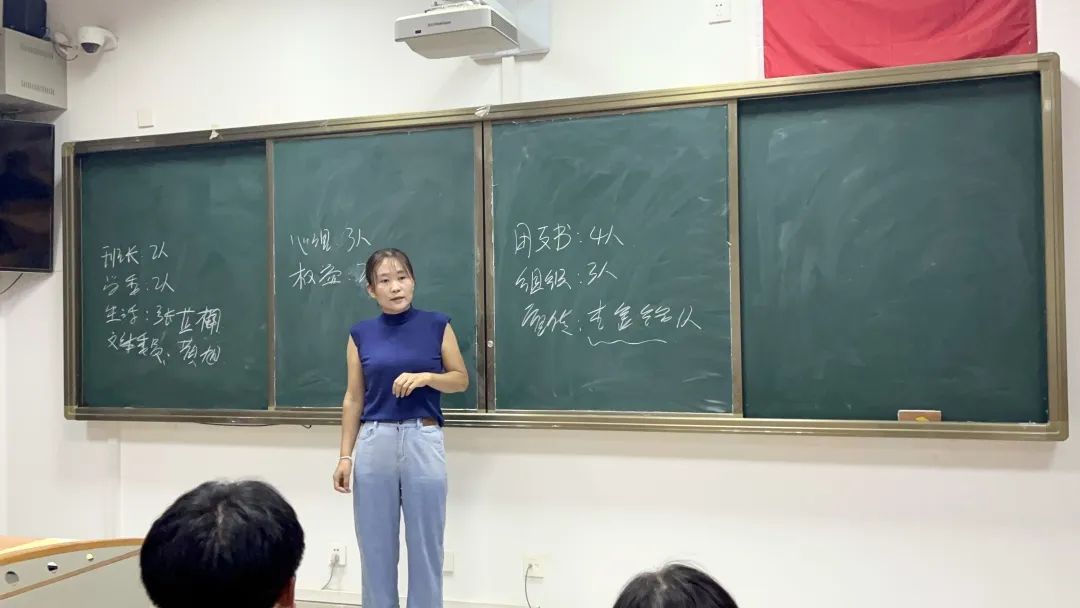 班长: 2人
学委: 2人
生活: 张芷楠
文体委员: 颜旭
心组: 3人
权益:
团支书: 4人
组织: 3人
宣传: